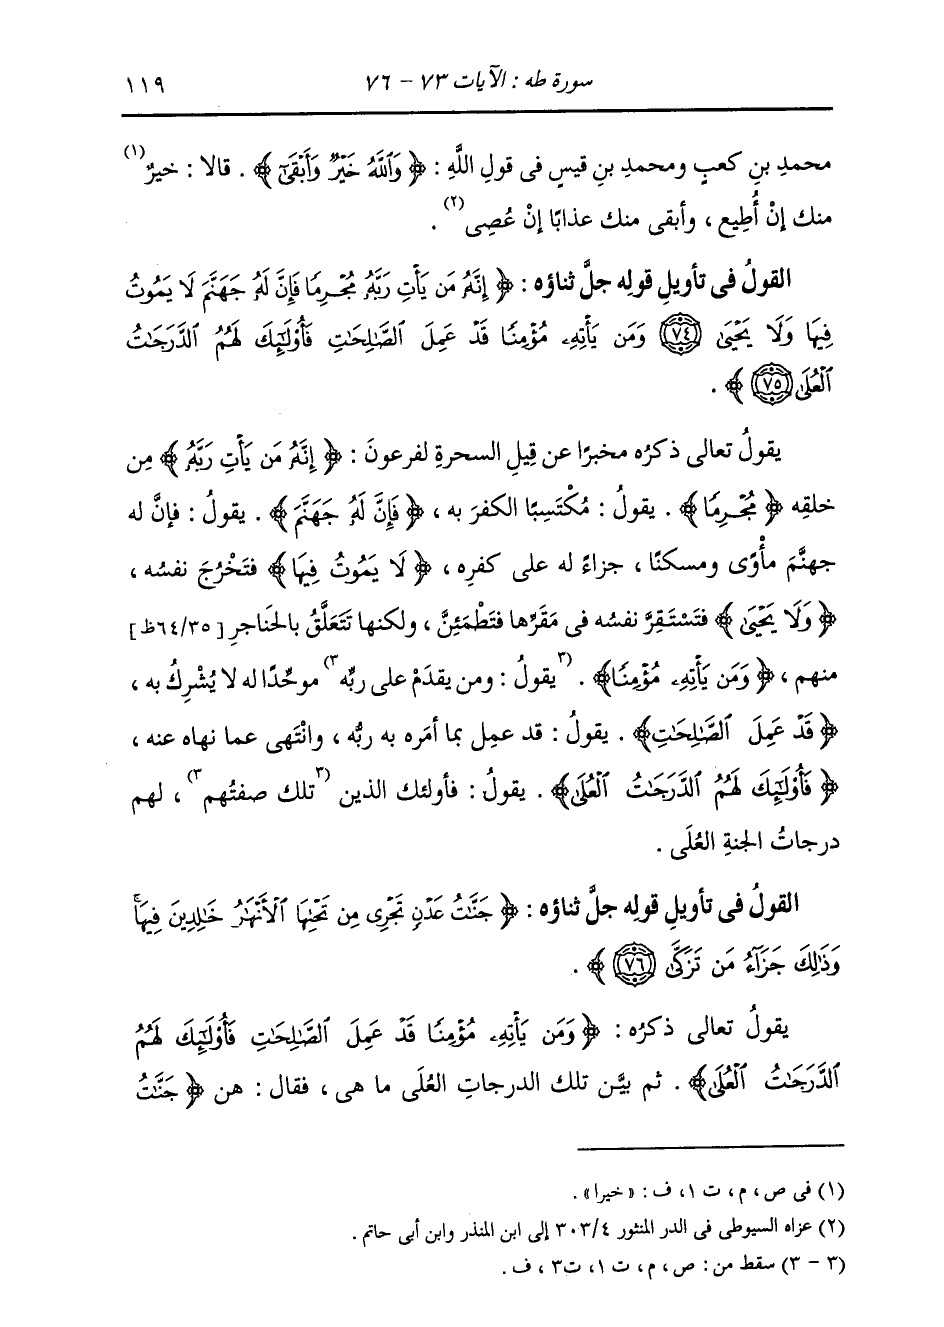 سورة طه : الآيات ٧٣ - ٧٦ ١١٩
محمدِ بنِ كعبٍ ومحمدِ بنِ قيسٍ فى قولِ اللَّهِ : ﴿ وَٱللَّهُ خَيْرٌ وَأَبْقَىٰٓ ﴾ . قالا : خيرٌ(١)
منك إنْ أُطِيع ، وأبقى منك عذابًا إنْ عُصِى(٢) .
القولُ فى تأويلِ قولِه جلَّ ثناؤه : ﴿ إِنَّهُۥ مَن يَأْتِ رَبَّهُۥ مُجْرِمًا فَإِنَّ لَهُۥ جَهَنَّمَ لَا يَمُوتُ
فِيهَا وَلَا يَحْيَىٰ ٧٤ وَمَن يَأْتِهِۦ مُؤْمِنًا قَدْ عَمِلَ ٱلصَّـٰلِحَـٰتِ فَأُو۟لَـٰٓئِكَ لَهُمُ ٱلدَّرَجَـٰتُ
ٱلْعُلَىٰ ٧٥ ﴾ .
يقولُ تعالى ذكرُه مخبرًا عن قيلِ السحرةِ لفرعونَ : ﴿ إِنَّهُۥ مَن يَأْتِ رَبَّهُۥ ﴾ مِن
خلقِه ﴿ مُجْرِمًا ﴾ . يقولُ : مُكْتَسِبًا الكفرَ به ، ﴿ فَإِنَّ لَهُۥ جَهَنَّمَ ﴾ . يقولُ : فإنَّ له
جهنَّمَ مأْوًى ومسكنًا ، جزاءً له على كفرِه ، ﴿ لَا يَمُوتُ فِيهَا ﴾ فتَخْرُجَ نفسُه ،
﴿ وَلَا يَحْيَىٰ ﴾ فتَسْتَقِرَّ نفسُه فى مَقَرِّها فتَطْمَئِنَّ ، ولكنها تتَعَلَّقُ بالحَناجرِ [٦٤/٣٥ظ]
منهم ، ﴿ وَمَن يَأْتِهِۦ مُؤْمِنًا ﴾ . (٣يقولُ : ومن يقدَمْ على ربِّه٣) موحِّدًا له لا يُشْرِكُ به ،
﴿ قَدْ عَمِلَ ٱلصَّـٰلِحَـٰتِ ﴾ . يقولُ : قد عمِل بما أمَره به ربُّه ، وانْتَهى عما نهاه عنه ،
﴿ فَأُو۟لَـٰٓئِكَ لَهُمُ ٱلدَّرَجَـٰتُ ٱلْعُلَىٰ ﴾ . يقولُ : فأولئك الذين (٣تلك صفتُهم٣) ، لهم
درجاتُ الجنةِ العُلَى .
القولُ فى تأويلِ قولِه جلَّ ثناؤه : ﴿ جَنَّـٰتُ عَدْنٍ تَجْرِى مِن تَحْتِهَا ٱلْأَنْهَـٰرُ خَـٰلِدِينَ فِيهَا ۚ
وَذَٰلِكَ جَزَآءُ مَن تَزَكَّىٰ ٧٦ ﴾ .
يقولُ تعالى ذكرُه : ﴿ وَمَن يَأْتِهِۦ مُؤْمِنًا قَدْ عَمِلَ ٱلصَّـٰلِحَـٰتِ فَأُو۟لَـٰٓئِكَ لَهُمُ
ٱلدَّرَجَـٰتُ ٱلْعُلَىٰ ﴾ . ثم بيَّن تلك الدرجاتِ العُلَى ما هى ، فقال : هن ﴿ جَنَّـٰتُ
(١) فى ص ، م ، ت ١، ف : « خيرا» .
(٢) عزاه السيوطى فى الدر المنثور ٣٠٣/٤ إلى ابن المنذر وابن أبى حاتم .
(٣ - ٣) سقط من : ص ، م ، ت ١، ت٣ ، ف .